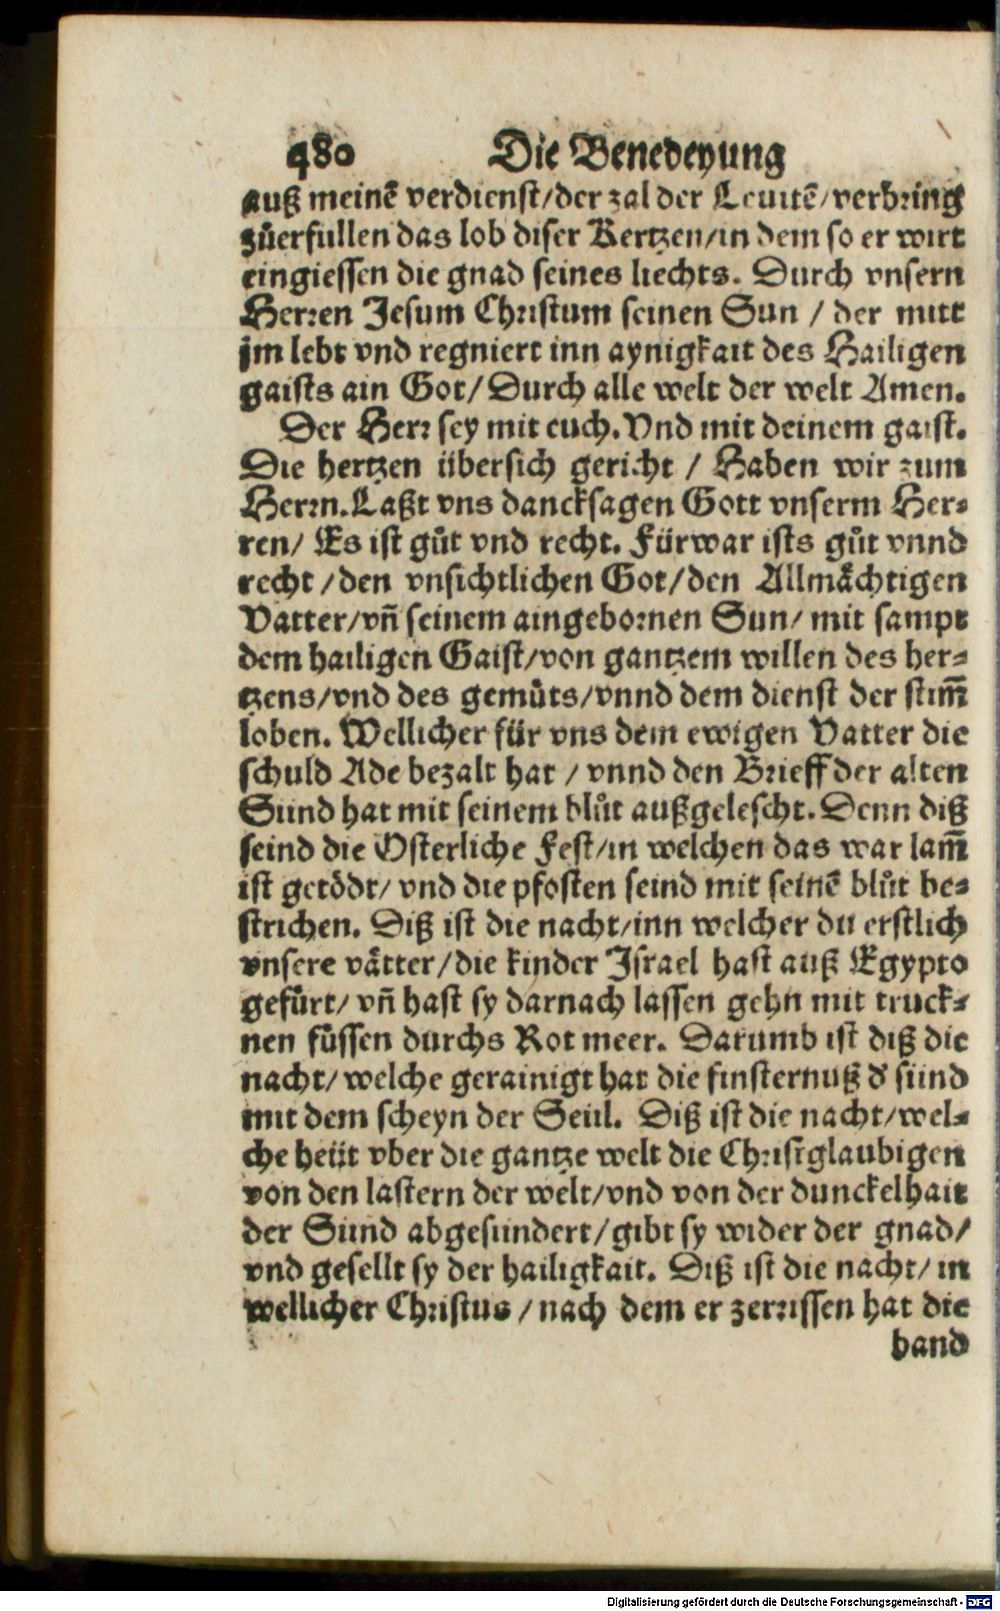 480 Die Benedeyung
auß meinẽ verdienst/der zal der Leuitẽ/verbring
zůerfullen das lob diser Kertzen/in dem so er wirt
eingiessen die gnad seines liechts. Durch vnsern
Herren Jesum Christum seinen Sun / der mitt
jm lebt vnd regniert inn aynigkait des Hailigen
gaists ain Got/ Durch alle welt der welt Amen.
Der Herr sey mit euch. Vnd mit deinem gaist.
Die hertzen übersich gericht / Haben wir zum
Herrn. Laßt vns dancksagen Gott vnserm Her-
ren/ Es ist gůt vnd recht. Fürwar ists gůt vnnd
recht /den vnsichtlichen Got/den Allmåchtigen
Vatter/vñ seinem aingebornen Sun/ mit sampt
dem hailigen Gaist/von gantzem willen des her-
tzens/vnd des gemůts/vnnd dem dienst der stim̃
loben. Wellicher für vns dem ewigen Vatter die
schuld Ade bezalt hat / vnnd den Brieff der alten
Sünd hat mit seinem blůt außgelescht. Denn diß
seind die Osterliche Fest/in welchen das war lam̃
ist getödt/ vnd die pfosten seind mit seinẽ blůt be-
strichen. Diß ist die nacht/inn welcher du erstlich
vnsere våtter/die kinder Israel hast auß Egypto
gefůrt/ vñ hast sy darnach lassen gehn mit truck-
nen fůssen durchs Rot meer. Darumb ist diß die
nacht/ welche gerainigt hat die finsternuß d̕ sünd
mit dem scheyn der Seül. Diß ist die nacht/wel-
che heüt vber die gantze welt die Christglaubigen
von den lastern der welt/vnd von der dunckelhait
der Sünd abgesundert/gibt sy wider der gnad/
vnd gesellt sy der hailigkait. Diß ist die nacht/ in
wellicher Christus / nach dem er zerrissen hat die
band
Digitalisierung gefördert durch die Deutsche Forschungsgemeinschaft - DFG